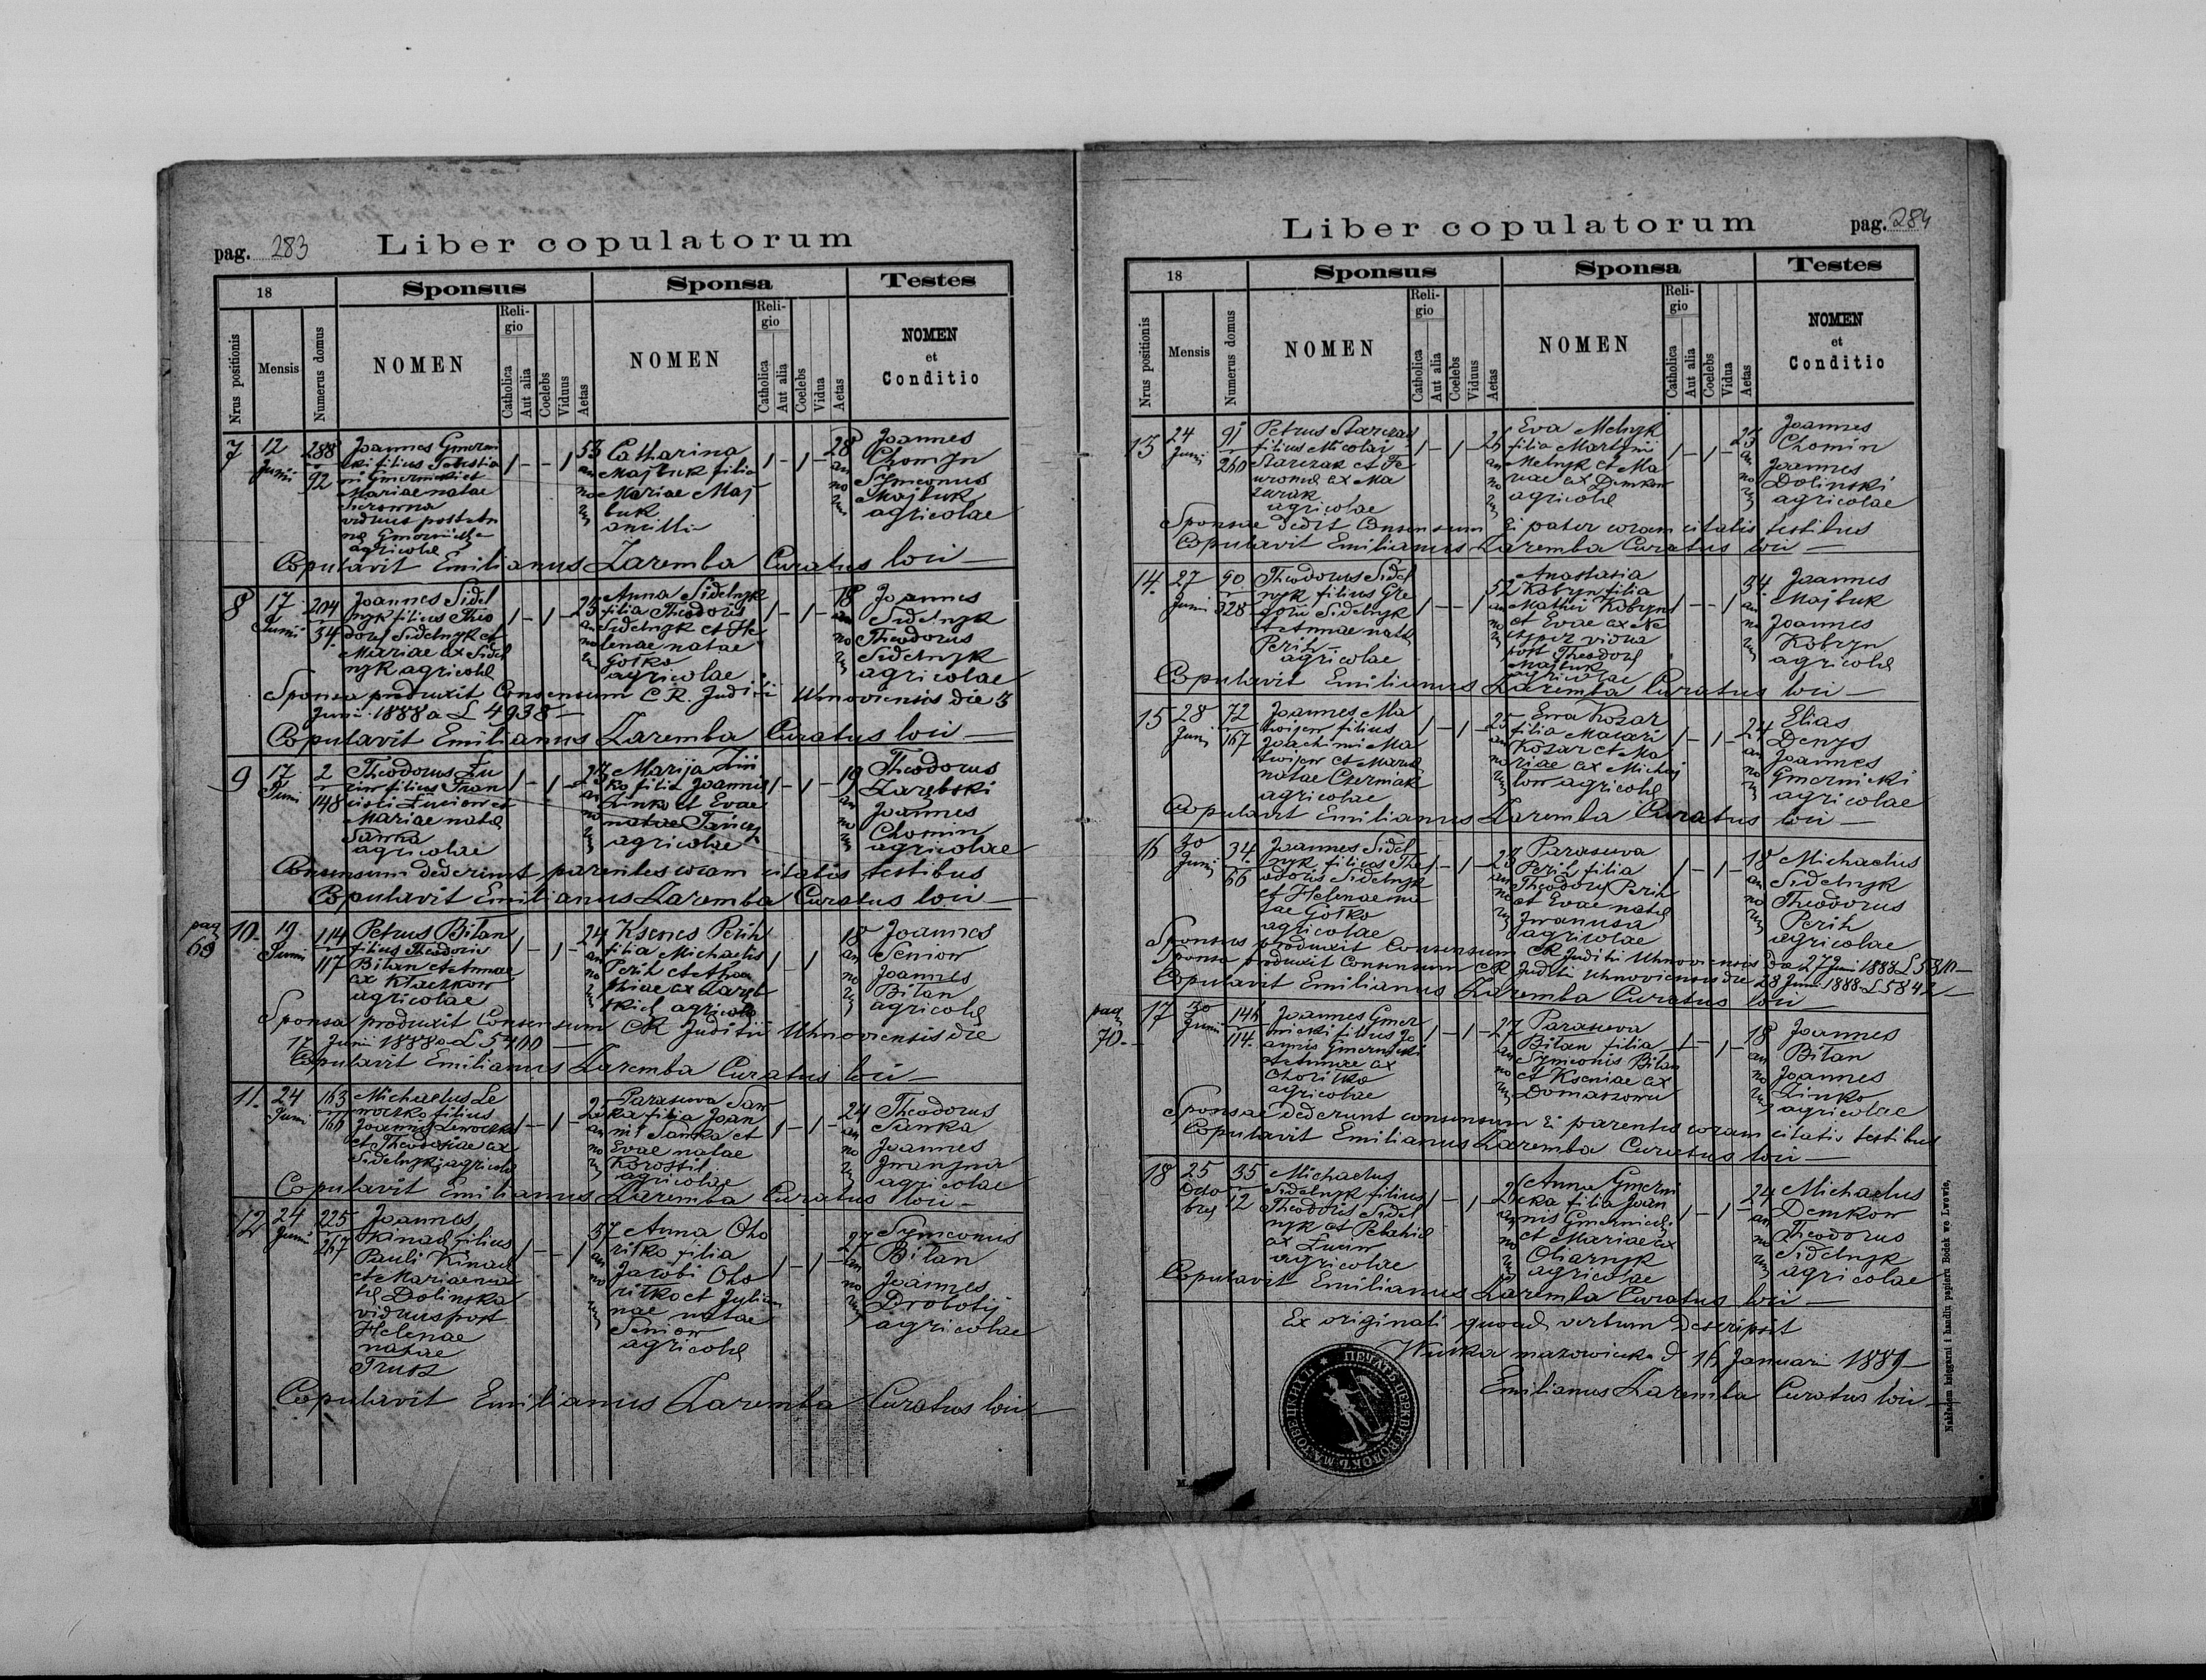 pag. 283
Liber copulatorum
18
Sponsus
Sponsa
Testes
Nrus positionis
Mensis
Numerus domus
NOMEN
Religio
Catholica
Aut alia
Coelebs
Viduus
Aetas
NOMEN
Religio
Catholica
Aut alia
Coelebs
Vidua
Aetas
NOMEN
et
Conditio
7
12
Junii
288
92
Joannes Gmerni
cki filius Sebastia
ni Gmernicki et
Mariae natae
viduus post
agricolae
53
an
no
rum
Catharina
Majbuk filia
Mariae Maj
buk
28
an
no
rum
Joannes
Chomyn
Symeonus
Majbuk
agricolae
Copulavit Emilianus Zaremba Curatus loci
8
17
Junii
204
34
Joannes Sidel
nyk filius Theo
dori Sidelnyk et
Mariae ex Sidel
nyk agricolae
25
an
no
rum
Anna Sidelnyk
filia Theodoris
Sidelnyk et He
lenae natae
Gotko
agricolae
18
an
no
rum
Joannes
Sidelnyk
Theodorus
Sidelnyk
agricolae
Sponsa produxit Consensum C. R. Juditii Uhnoviensis die 3
Junii 1888 a L 4938
Copulavit Emilianus Zaremba Curatus loci
9
17
Junii
2
148
Theodorus Łu
ciw filius Fran
cisci Łuciow et
Mariae natae
Sawka
agricolae
23
an
no
rum
Marija Zin
ko filia Joannis
Zinko et Evae
natae
agricolae
19
an
no
rum
Theodorus
Zarębski
Joannes
Chomin
agricolae
Consensum dederunt parentes coram citatis testibus
Copulavit Emilianus Zaremba Curatus loci
pag
69
10
19
Junii
114
117
Petrus Bilan
filius Theodoris
Bilan et Annae
ex Kłaczkow
agricolae
24
an
no
rum
Ksenes Perih
filia Michaelis
Perih et
ex Zaręb
skich agricolae
18
an
no
rum
Joannes
Seniow
Joannes
Bilan
agricolae
Sponsa produxit Consensum C R Juditii Uhnoviensis die
17 Junii 1888 a L 5400
Copulavit Emilianus Zaremba Curatus loci
11
24
Junii
163
160
Michaelus Le
woczko filius
Joannis Lewoczko
et Theodosiae ex
Sidelnyk agricolae
an
no
rum
Parasceva Saw
ka filia Joan
nis Sawka et
Evae natae
Korostil
agricolae
24
an
no
rum
Theodorus
Sawka
Joannes
Iwanyna
agricolae
Copulavit Emilianus Zaremba Curatus loci
12
24
Junii
225
267
Joannes
Kinach filius
Pauli Kinach
et Mariae na
tae Dolinska
viduus post
Helenae
natae
Trusz
57
an
no
rum
Anna Oho
ritko filia
Jacobi Oho
ritko et Julian
nae natae
Seniow
agricolae
27
an
no
rum
Symeonus
Bilan
Joannes
Drobotij
agricolae
Copulavit Emilianus Zaremba Curatus loci
Liber copulatorum
pag. 284
18
Sponsus
Sponsa
Testes
Nrus positionis
Mensis
Numerus domus
NOMEN
Religio
Catholica
Aut alia
Coelebs
Viduus
Aetas
NOMEN
Religio
Catholica
Aut alia
Coelebs
Vidua
Aetas
NOMEN
et
Conditio
13
24
Junii
91
260
Petrus Starczak
filius Nicolai
Starczak et Fe
wroniae ex Ma
zurak
agricolae
26
an
no
rum
Eva Melnyk
filia Martyni
Melnyk et Ma
riae ex Demkow
agricolae
23
an
no
rum
Joannes
Chomin
Joannes
Dolinski
agricolae
Sponsae dedit Consensum Ei pater coram citatis testibus
Copulavit Emilianus Zaremba Curatus loci
14
27
Junii
90
328
Theodorus Sidel
nyk filius Gre
gorii Sidelnyk
et Annae natae
Perih
agricolae
52
an
no
rum
Anastasia
Kobryn filia
Mathei Kobryn
et Evae ex
vidua
post Theodori
Majbuk
agricolae
54
an
no
rum
Joannes
Majbuk
Joannes
Kobryn
agricolae
Copulavit Emilianus Zaremba Curatus loci
15
28
Junii
72
167
Joannes Ma
twijew filius
Joachimi Ma
twijew et Mariae
natae Czerniak
agricolae
25
an
no
rum
Ewa Kozar
filia Macarii
Kozar et Ma
riae ex Michaj
low agricolae
24
an
no
rum
Elias
Denys
Joannes
Gmernicki
agricolae
Copulavit Emilianus Zaremba Curatus loci
16
30
Junii
34
66
Joannes Sidel
nyk filius The
odoris Sidelnyk
et Helenae na
tae Gotko
agricolae
23
an
no
rum
Parasceva
Perih filia
Theodori Perih
et Evae natae
Iwanusa
agricolae
18
an
no
rum
Michaelus
Sidelnyk
Theodorus
Perih
agricolae
Sponsus produxit Consensum CR Juditii Uhnoviensis De 27 Junii 1888
Sponsa produxit Consensum CR Juditii Uhnoviensis die 28 Junii 1888 L 5842
Copulavit Emilianus Zaremba Curatus loci
pag
70
17
30
Junii
146
114
Joannes Gmer
nicki filius Jo
annis Gmernicki
et Annae ex
Ohoritko
agricolae
27
an
no
rum
Parasceva
Bilan filia
Symeonis Bilan
et Kseniae ex
18
an
no
rum
Joannes
Bilan
Joannes
Zinko
agricolae
Sponsae dederunt consensum Ei parentes coram citatis testibus
Copulavit Emilianus Zaremba Curatus loci
18
25
Octo
bris
35
12
Michaelus
Sidelnyk filius
Theodoris Sidel
nyk et Pelahiae
ex Łuciw
agricolae
an
no
rum
Anna Gmerni
cka filia Joan
nis Gmernicki
et Mariae ex
Oliarnyk
agricolae
24
an
no
rum
Michaelus
Demkow
Theodorus
Sidelnyk
agricolae
Copulavit Emilianus Zaremba Curatus loci
Ex originali quoad verbum descripsit
Wulka mazowiecka d 16 Januari 1889
Emilianus Zaremba Curatus loci
ПЕЧАТЬ ЦЕРКВИ ВОЛОКЪ МАЗОВЕЦКИХЪ
Nakładem księgarni i handlu papieru Bodek we Lwowie.